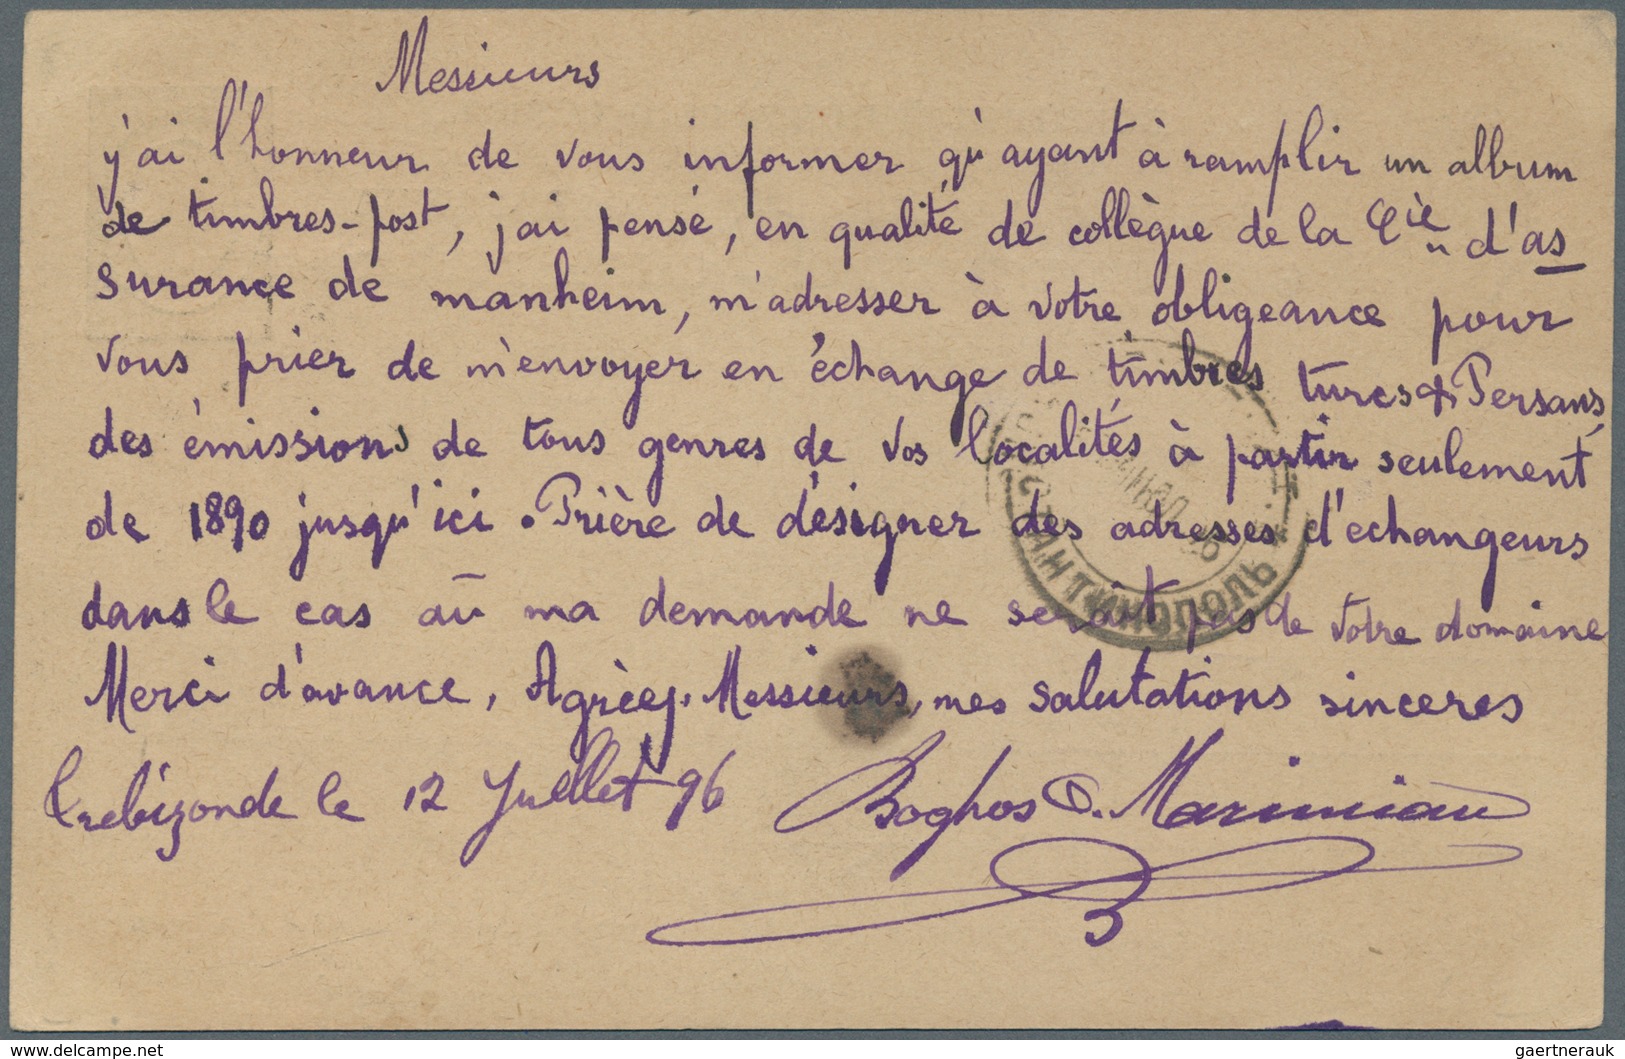 Messieurs
j'ai l'honneur de vous informer qu'ayant à ramplir un album
de timbres-post, j'ai pensé, en qualité de collègue de la Cie d'as
surance de manheim, m'adresser à votre obligeance pour
vous prier de m'envoyer en échange de timbres turcs & Persans,
des émissions de tous genres de vos localités à partir seulement
de 1890 jusqu'ici. Prière de désigner des adresses d'echangeurs
dans le cas aū ma demande ne serait pas de votre domaine
Merci d'avance, Agréez. Messieurs, mes salutations sinceres
Trebizonde le 12 Juillet 96 Boghos O. Marimian
АНТИНОПОЛЬ
www.delcampe.net
gaertnerauk